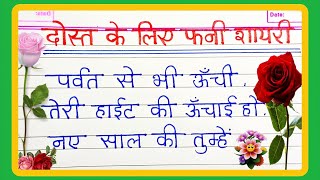 Date:
दोस्त के लिए फनी शायरी
पर्वत से भी ऊँची
तेरी हाईट की ऊँचाई हो.
नए साल की तुम्हें